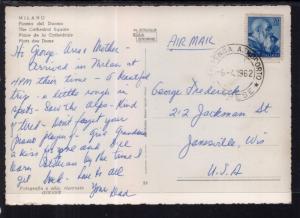 MILANO
Piazza del Duomo
The Cathedral Square
Place de la Cathédrale
Platz des Doms
Hi George, and Mother -
Arrived in Milan at
4 PM their time - a beautiful
trip - a little rough in
spots - Saw the alps - Kind
of tired - Don't forget your
piano playing - Give Grandma
a kiss for me and
Learn
get back - Love to all
Your Dad
AIR MAIL
1962
George Frederick
212 Jackman St
Janesville, Wis
U.S.A